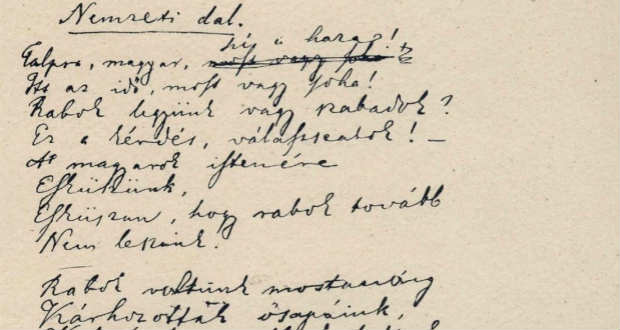 Nemzeti dal.
hí a haza!
Talpra, magyar, most vagy soha
Itt az idő, most vagy soha!
Rabok legyünk vagy szabadok?
Ez a kérdés, válasszatok! –
A magyarok istenére
Esküszünk,
Esküszünk, hogy rabok tovább
Nem leszünk.
Rabok voltunk mostanáig
Kárhozottak ősapáink,